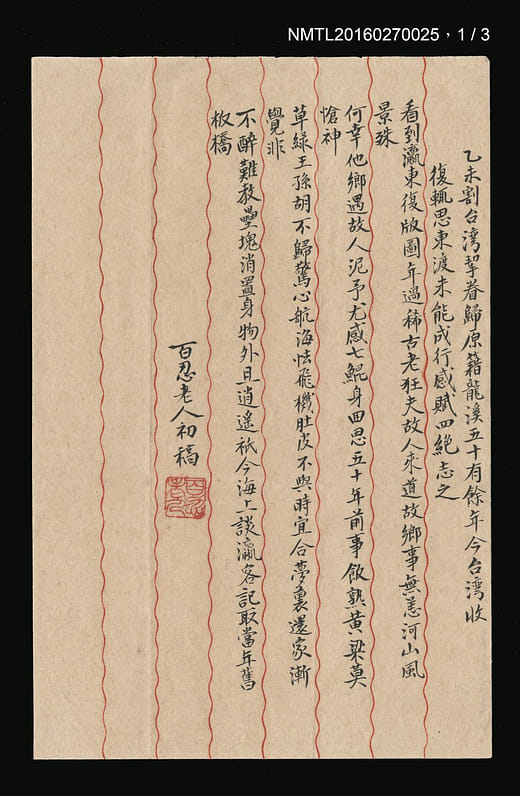 NMTL20160270025，1 / 3
乙未割台湾挈眷歸原籍龍溪五十有餘年今台湾收
復輒思東渡未能成行感賦四絶志之
看到瀛東復版圖年過稀古老狂夫故人來道故鄉事無恙河山風
景殊
何幸他鄉遇故人泥予尤感七鯤身回思五十年前事飯熟黄梁莫
愴神
草緑王孫胡不歸驚心航海怯飛機肚皮不與時宜合夢裏還家漸
覺非
不醉難教壘塊消置身物外且逍遥祇今海上談瀛客記取當年舊
板橋
百忍老人初稿